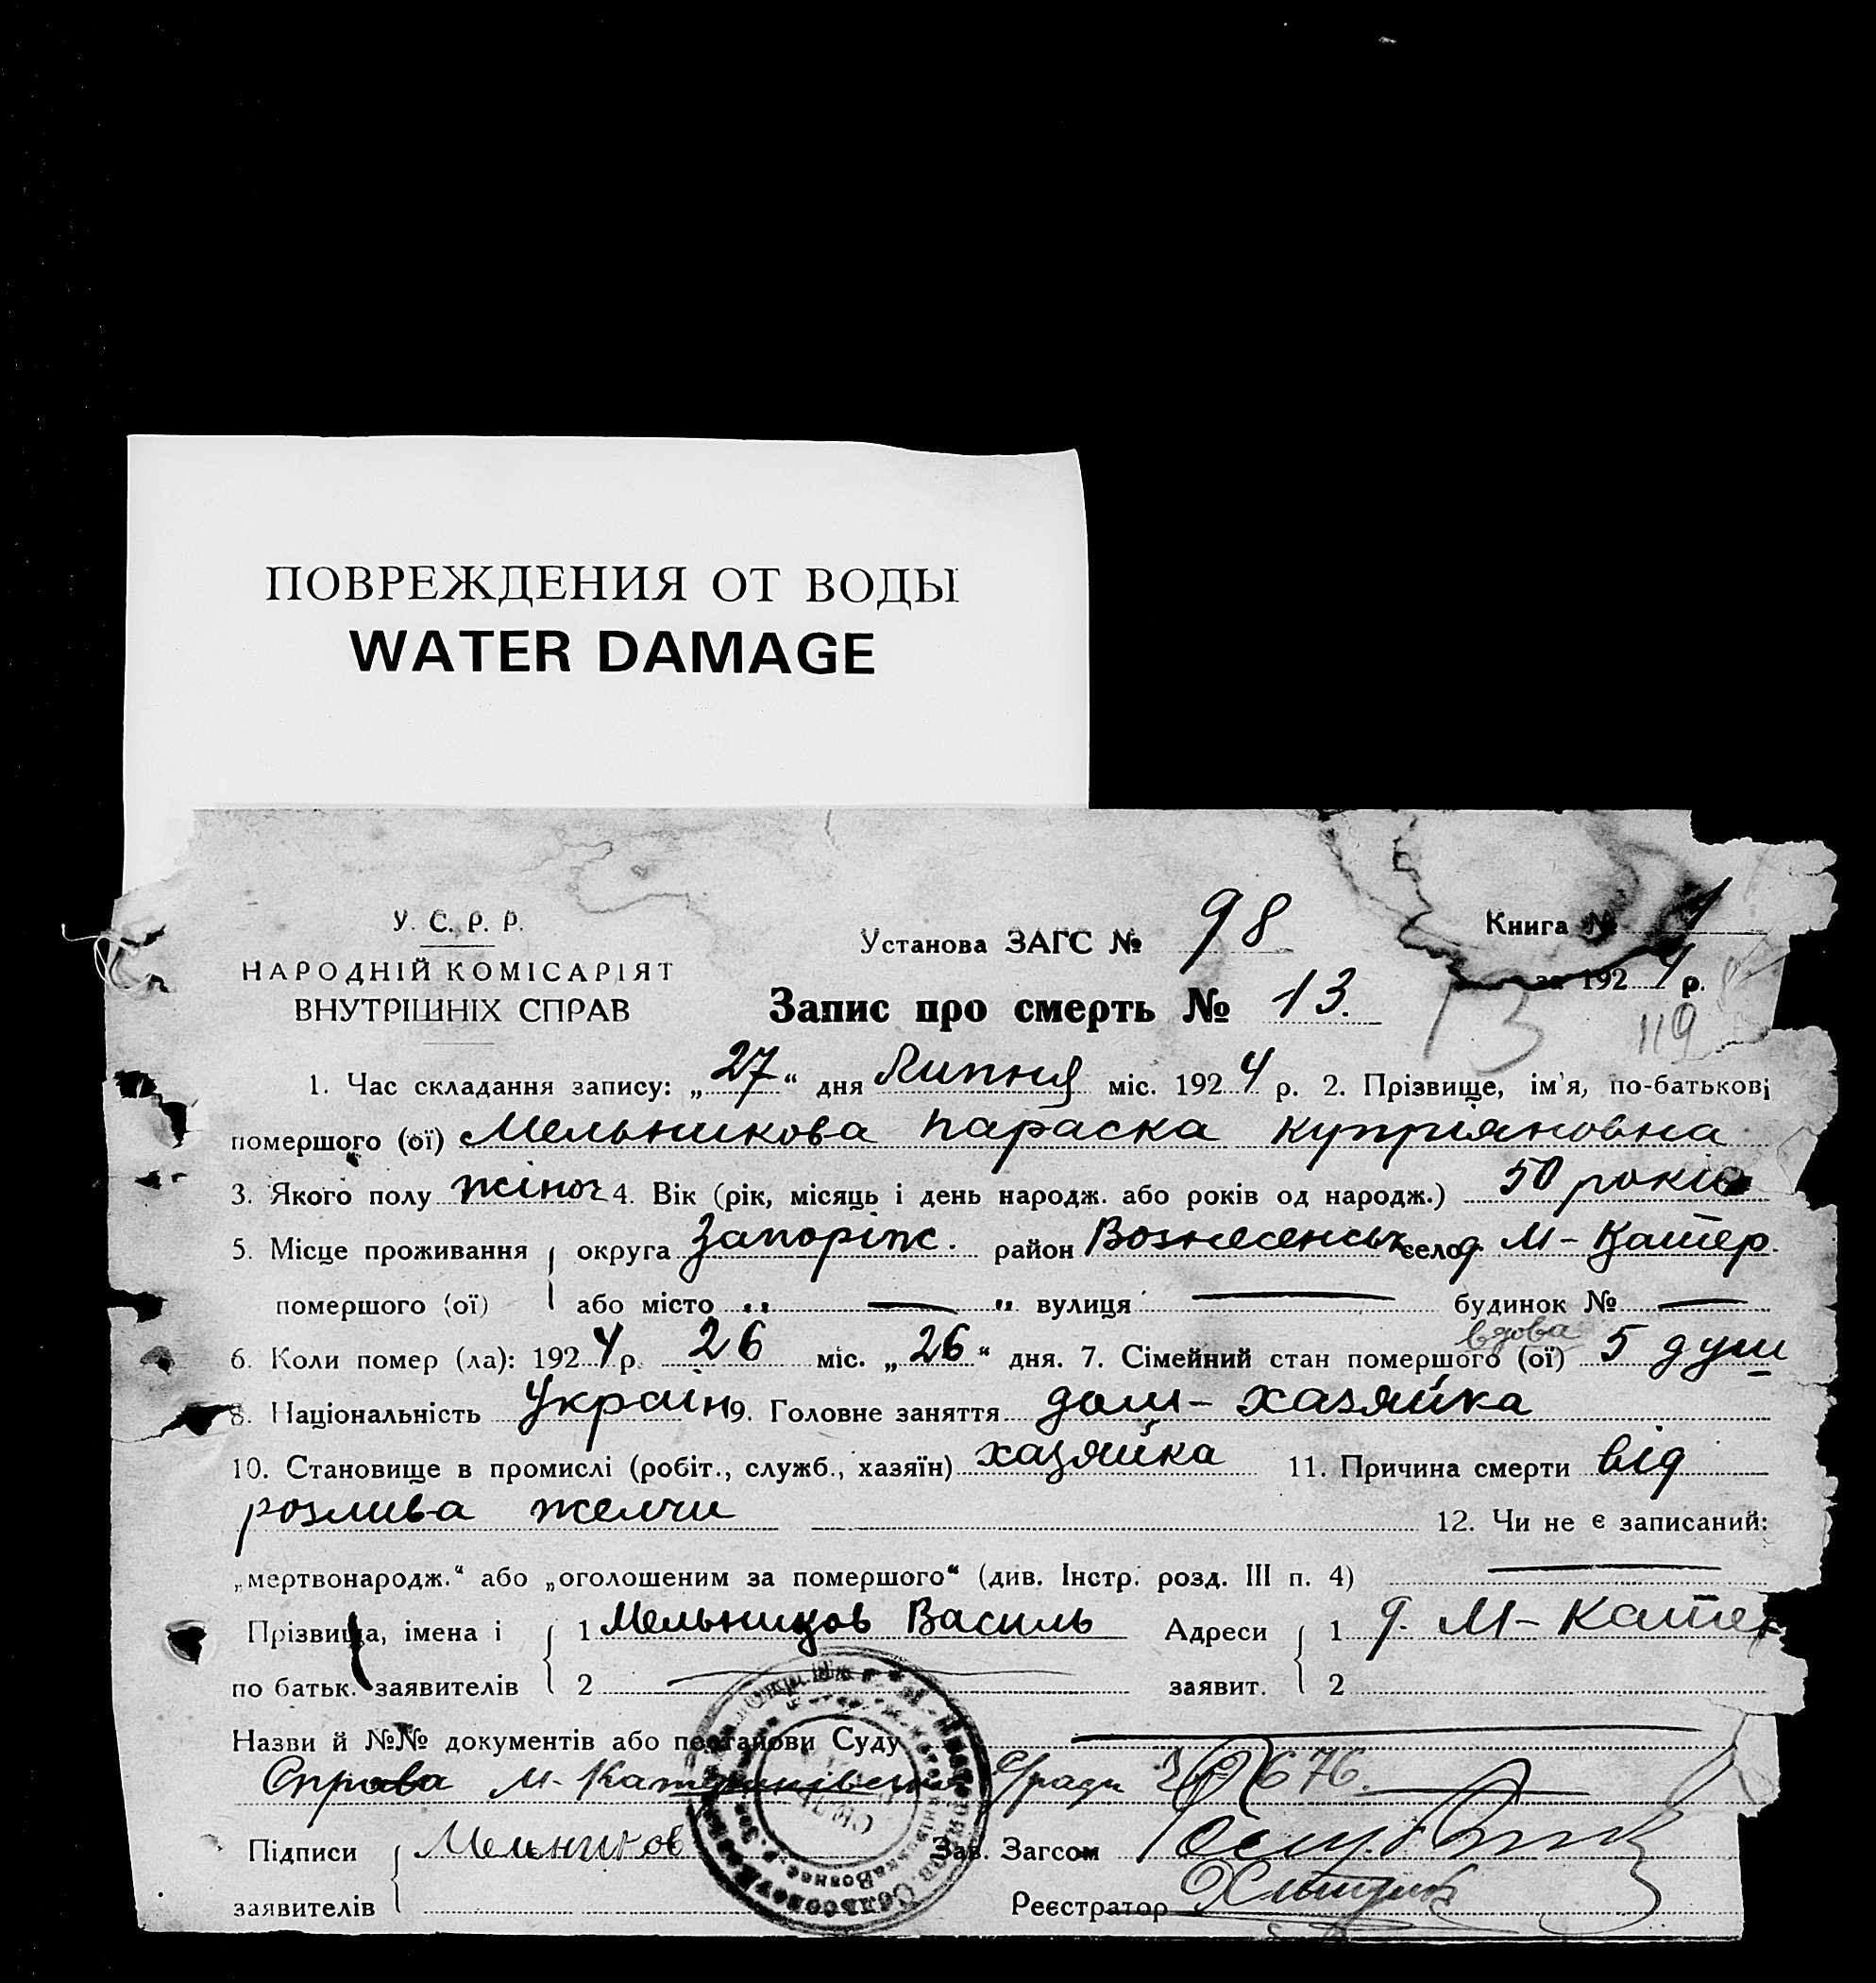 ПОВРЕЖДЕНИЯ ОТ ВОДЫ
WATER DAMAGE
У. С. Р. Р.
НАРОДНІЙ КОМІСАРІЯТ
ВНУТРІШНІХ СПРАВ
Установа ЗАГС № 98
Книга № 1
за 1924 р.
Запис про смерть № 13.
13 119
1. Час складання запису: „27“ дня Липня міс. 1924 р. 2. Прізвище, ім'я, по-батькові
помершого (ої) Мельникова Параска Купріяновна
3. Якого полу жіноч 4. Вік (рік, місяць і день народж. або років од народж.) 50 років
5. Місце проживання округа Запоріж. район Вознесенськ село д. М-Катер.
помершого (ої) або місто „ — " вулиця — будинок № —
вдова
6. Коли помер (ла): 1924 р. 26 міс. „26“ дня. 7. Сімейний стан помершого (ої) 5 душ
8. Національність Україн 9. Головне заняття дом-хазяйка
10. Становище в промислі (робіт., служб., хазяїн) хазяйка 11. Причина смерти від
розлива желчи 12. Чи не є записаний:
„мертвонародж.“ або „оголошеним за помершого“ (див. Інстр. розд. III п. 4) —
Прізвища, імена і 1 Мельников Василь Адреси 1 д. М-Катер
по батьк. заявителів 2 — заявит. 2
Назви й №№ документів або постанови Суду —
Справа М-Катеринівської с/ради 676.
Підписи Мельников Зав. Загсом
заявителів Реєстратор